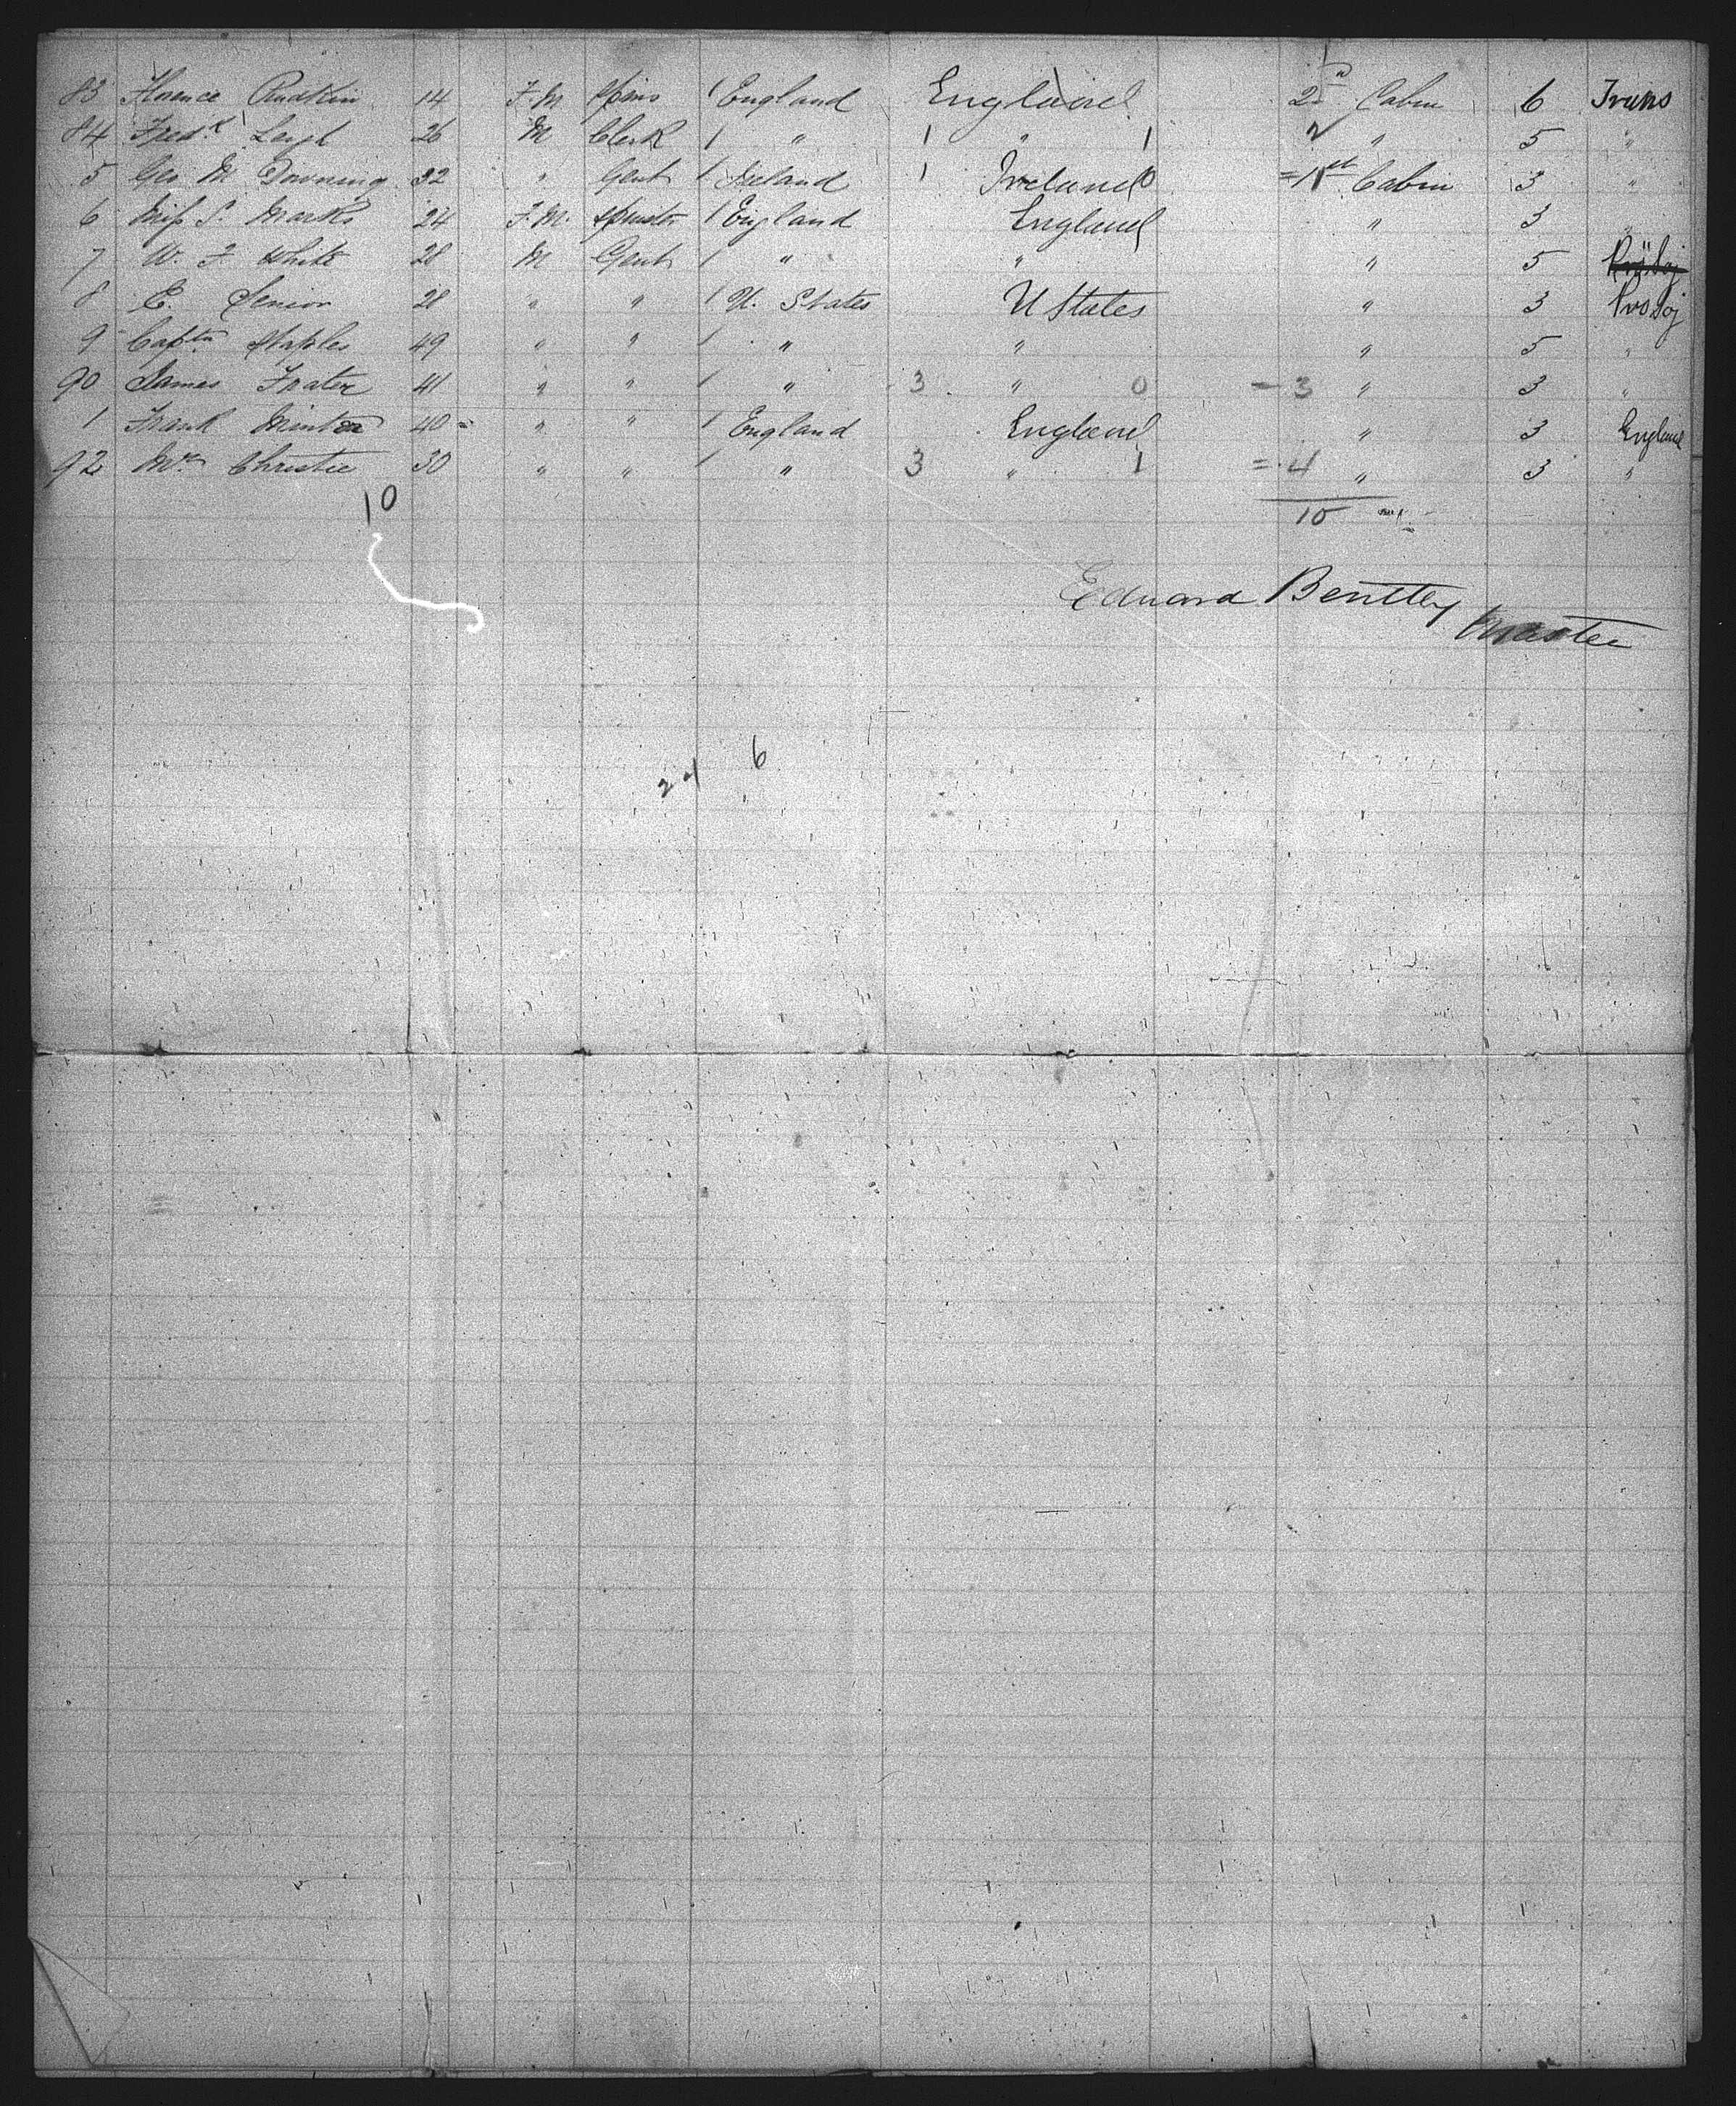 83 Florence Rudkin 14 F. M Spins 1 England England 2nd Cabin 6 Trans
84 Fredk Leigh 26 M Clerk 1 " 1 " 1 " 5 "
5 Geo M Downing 32 " Gent 1 Ireland 1 Ireland 0 = 1st Cabin 3 "
6 Miss S. Marks 24 F. M. Spinster 1 England England " 3 "
7 W. F. White 28 M Gent 1 " " " 5
8 E. Senior 28 " " 1 U. States U States " 3 Pro Soj
9 Captn Staples 49 " " 1 " " " 5 "
90 James Frater 41 " " 1 " 3 " 0 = 3 " 3 "
1 Frank Minton 40 " " 1 England England " 3 England
92 Mr Christie 30 " " 1 " 3 " 1 = 4 " 3 "
10
10
Edward Bentley Master
6